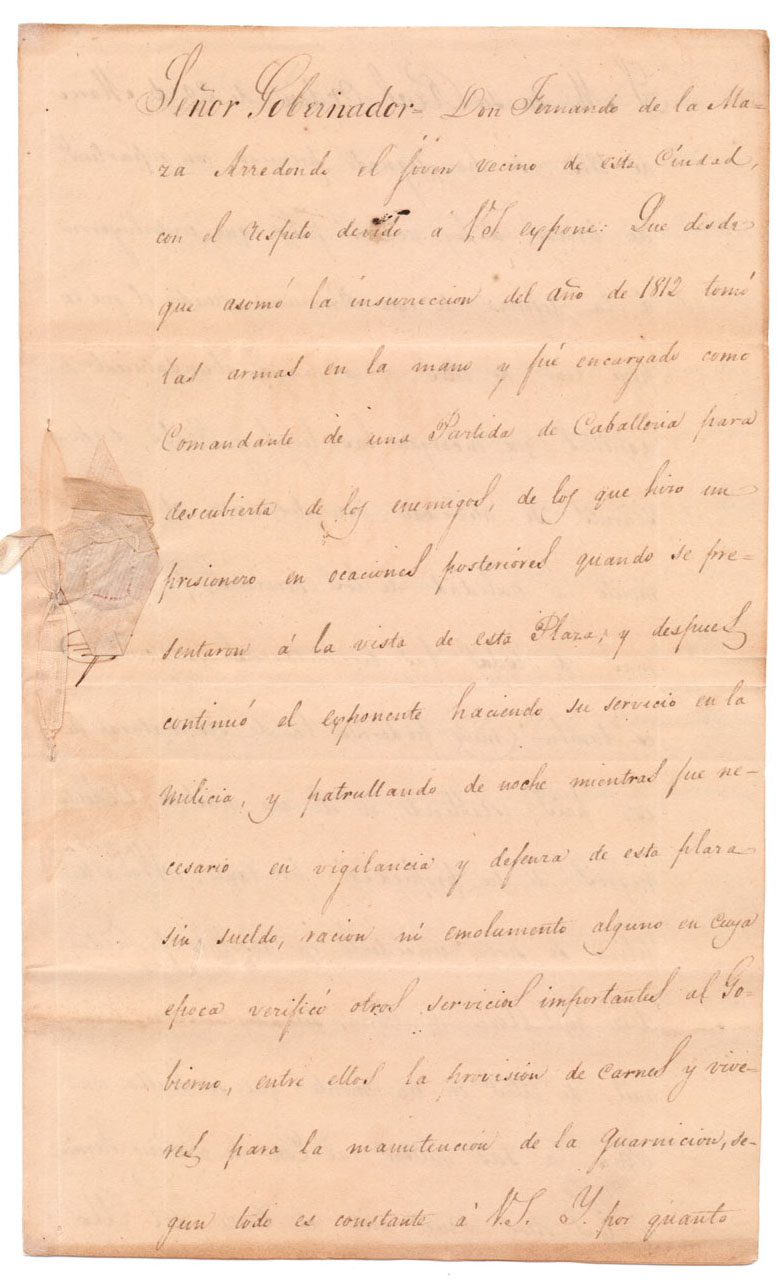 Señor Gobernador= Don Fernando de la Ma=
za Arredondo el Jóven vecino de esta Ciudad,
con el respeto devido á V.S. expone: Que desde
que asomó la insurreccion del año de 1812 tomó
las armas en la mano y fué encargado como
Comandante de una Partida de Caballeria para
descubierta de los enemigos, de los que hizo un
prisionero en ocaciones posteriores quando se pre=
sentaron á la vista de esta Plaza; y despues
continuó el exponente haciendo su servicio en la
Milicia, y patrullando de noche mientras fue ne=
cesario en vigilancia y defenza de esta plaza
sin sueldo, racion ni emolumento alguno en cuya
epoca verificó otros servicios importantes al Go=
bierno, entre ellos la provision de carnes y vive=
res para la manutencion de la Guarnicion, se=
gun todo es constante á V.S. Y. por quanto